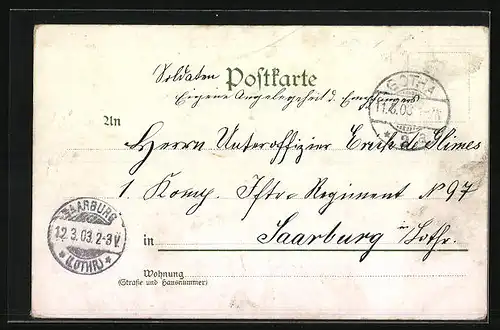 Soldaten Postkarte
Eigene Angelegenheit d. Empfängers
GOTHA
11.3.03
An
Herrn Unteroffizier Erich de Himes
1. Komp. Iftr. Regiment No 97
SAARBURG
12.3.03 2-3 V.
* (LOTHR.) *
in Saarburg i/Lothr.
Wohnung
(Straße und Hausnummer)